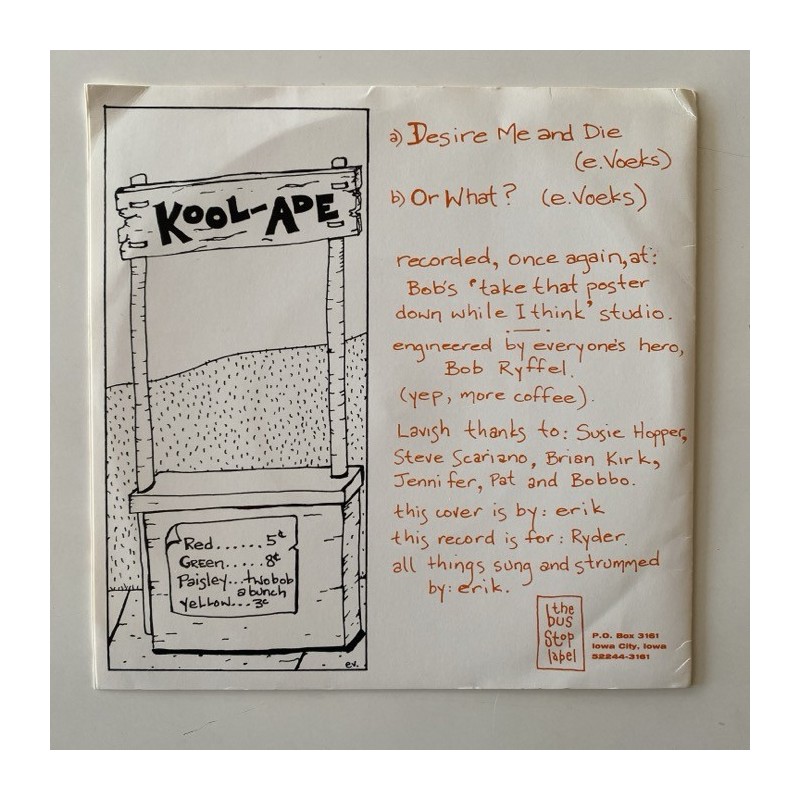 KOOL-ADE
Red......5¢
GREEN.....8¢
Paisley...two bob
a bunch
Yellow...3¢
e.v.
a) Desire Me and Die
(e.Voeks)
b) Or What? (e.Voeks)
recorded, once again, at:
Bob's 'take that poster
down while I think' studio.
engineered by everyone's hero,
Bob Ryffel.
(yep, more coffee).
Lavish thanks to: Susie Hopper,
Steve Scariano, Brian Kirk,
Jennifer, Pat and Bobbo.
this cover is by: erik
this record is for: Ryder.
all things sung and strummed
by: erik.
the
bus
stop
label
P.O. Box 3161
Iowa City, Iowa
52244-3161